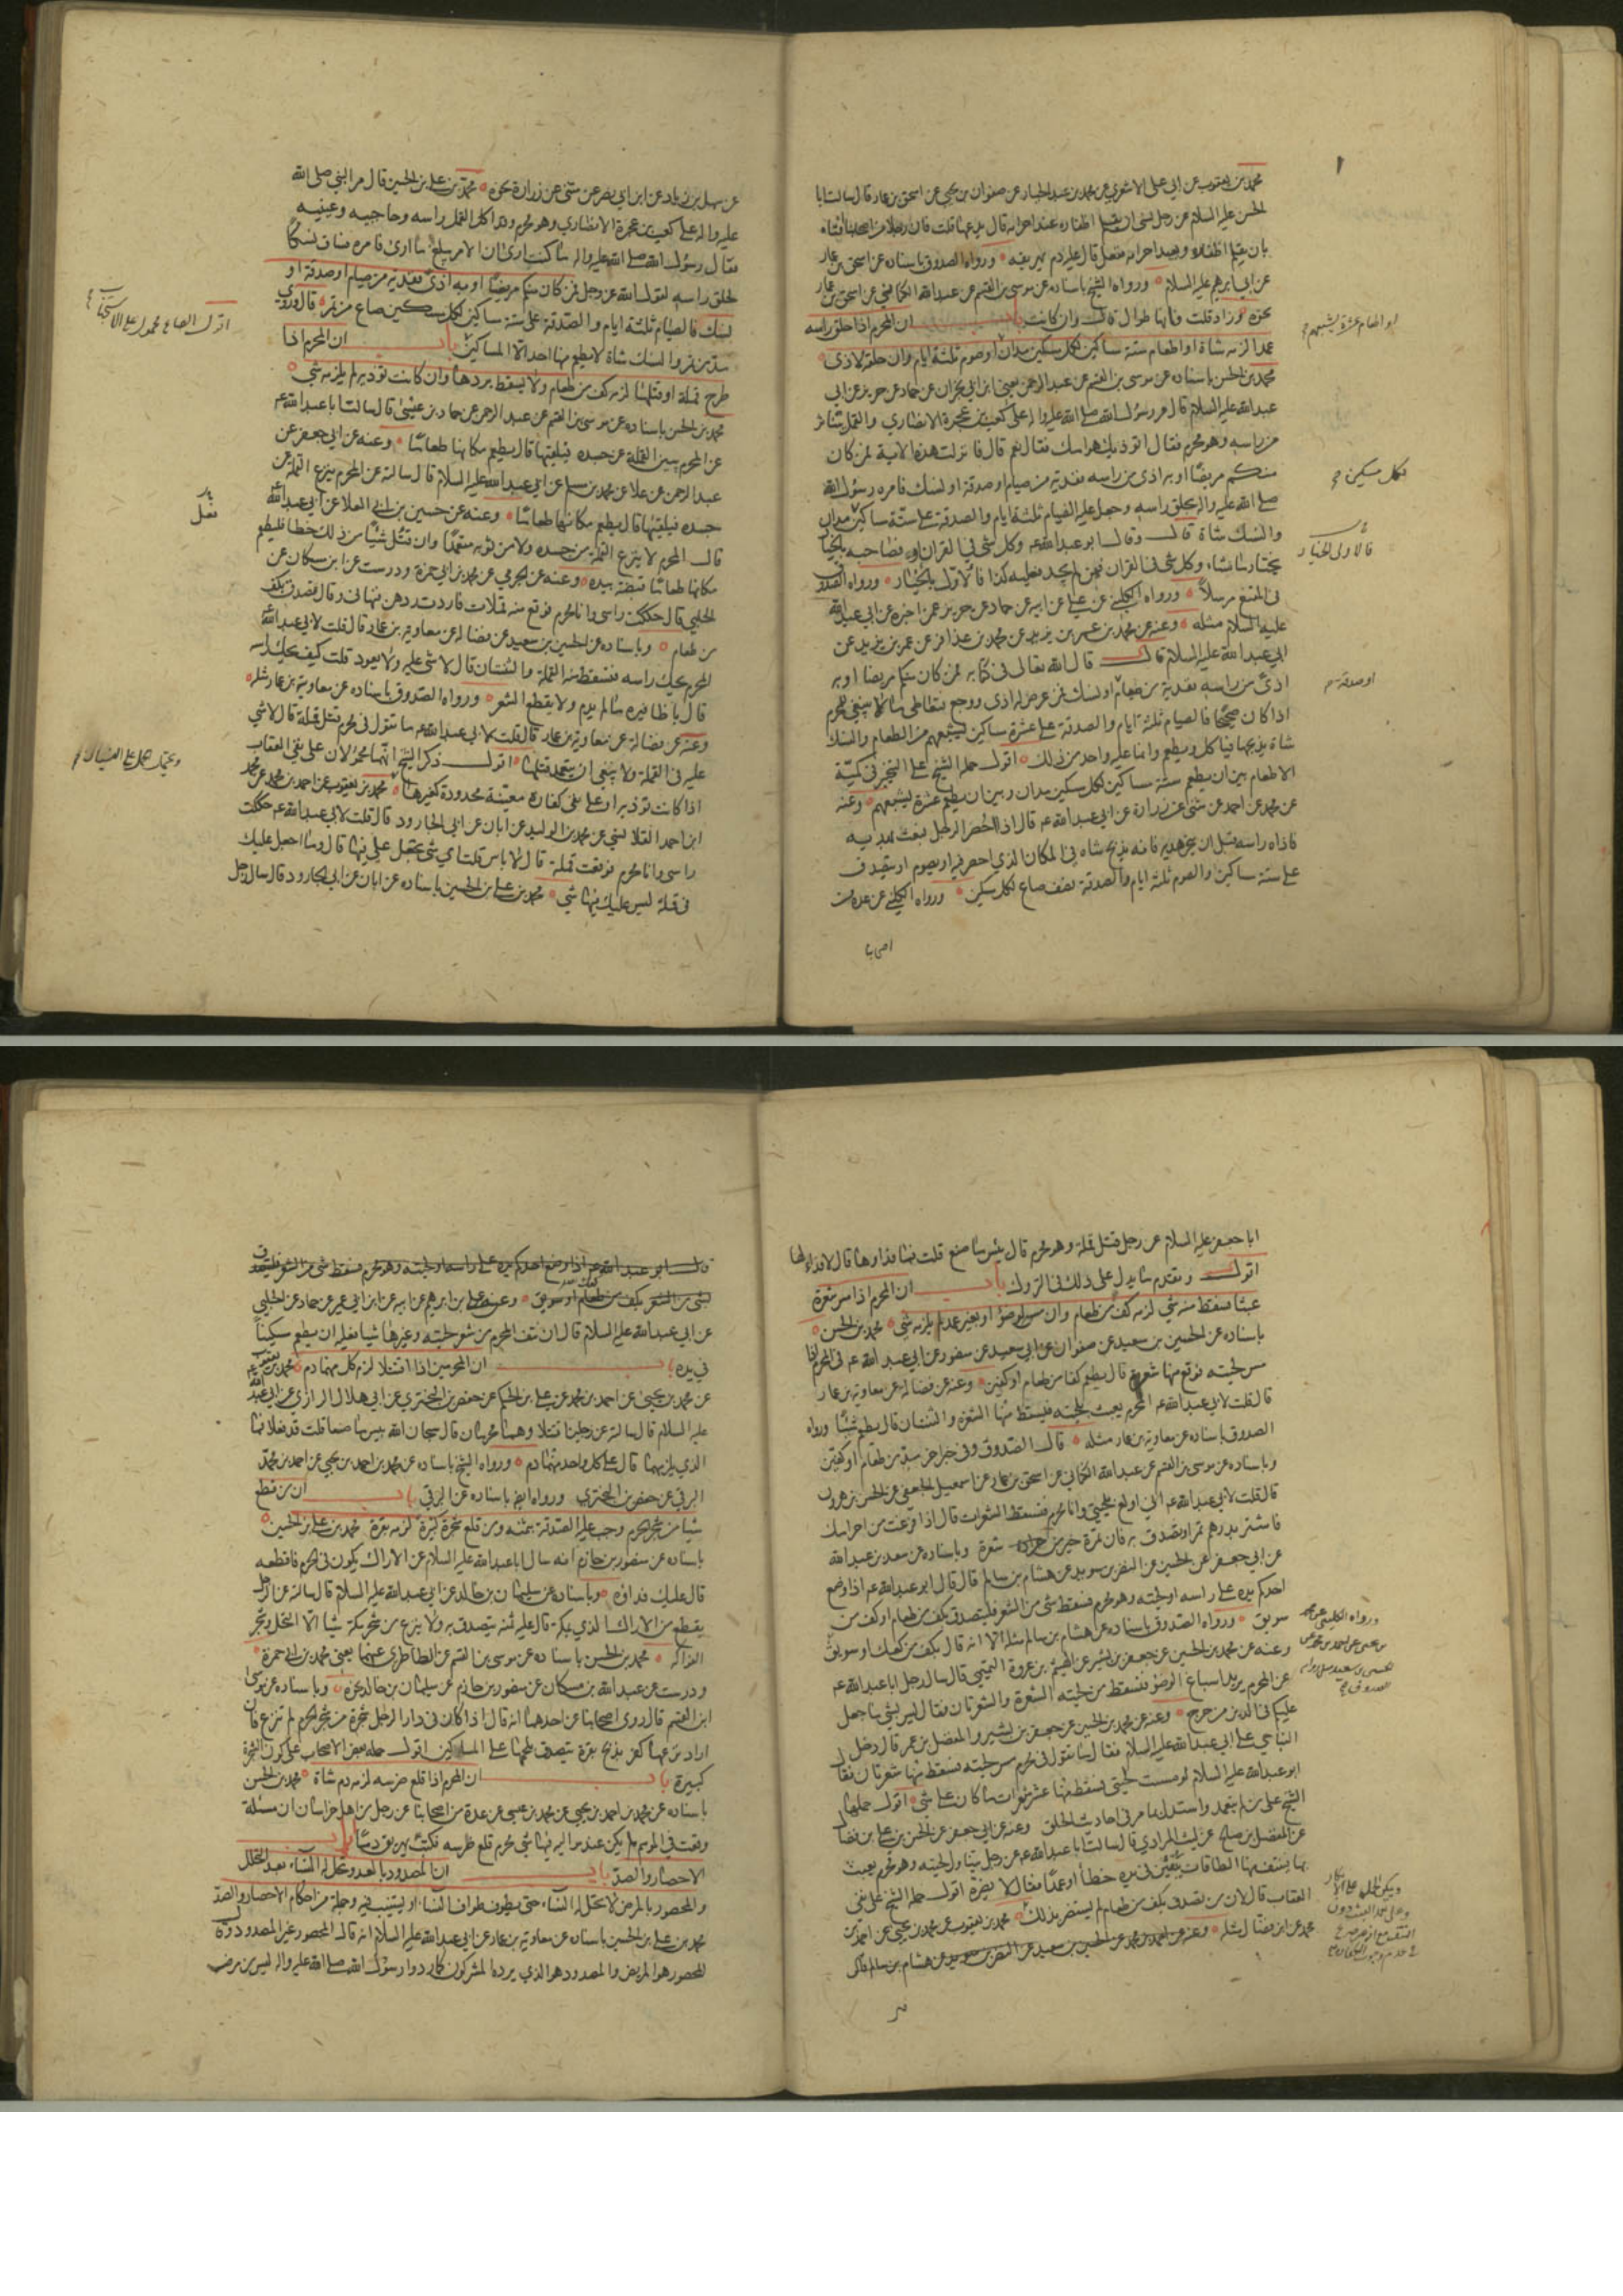 محمد بن يعقوب عن ابي علي الاشعري عن محمد بن عبد الجبار عن صفوان بن يحيى عن اسحق بن عمار قال سالت ابا
الحسن عليه السلام عن رجل نسي ان يقلم اظفاره عند احرامه قال يدعها قلت فان رجلا من اصحابنا افتاه
بان يقلم اظفاره ويعيد احرامه ففعل قال عليه دم يهريقه ورواه الصدوق باسناده عن اسحق بن عمار
عن ابي ابرهيم عليه السلام ورواه الشيخ باسناده عن موسى بن القسم عن عبد الله الكناني عن اسحق بن عمار
نحوه وزاد قلت فانها طوال قال وان كانت باب ان المحرم اذا حلق راسه
عمدا لزمه شاة او اطعام ستة مساكين لكل مسكين مدان او صوم ثلثة ايام وان حلقه لاذى
محمد بن الحسن باسناده عن موسى بن القسم عن عبد الرحمن يعني ابن ابي نجران عن حماد عن حريز عن ابي
عبد الله عليه السلام قال مر رسول الله صلى الله عليه واله على كعب بن عجرة الانصاري والقمل يتناثر
من راسه وهو محرم فقال اتوذيك هوامك فقال نعم قال فانزلت هذه الاية فمن كان
منكم مريضا او به اذى من راسه ففدية من صيام او صدقة او نسك فامره رسول الله
صلى الله عليه واله يحلق راسه وجعل عليه الصيام ثلثة ايام والصدقة على ستة مساكين مدان
والنسك شاة قال وقال ابو عبد الله ع وكل شي في القران او فصاحبه بالخيار
يختار ما شاء وكل شي في القران فمن لم يجد فعليه كذا فالاول بالخيار ورواه الصدوق
في المقنع مرسلا ورواه الكليني عن علي عن ابيه عن حماد عن حريز عمن اخبره عن ابي عبد الله
عليه السلام مثله وعنه عن محمد بن عمر بن يزيد عن محمد بن عذافر عن عمر بن يزيد عن
ابي عبد الله عليه السلام قال قال الله تعالى في كتابه فمن كان منكم مريضا او به
اذى من راسه ففدية من صيام او نسك فمن عرض له اذى ووجع فتعاطى ما لا ينبغي للمحرم
اذا كان صحيحا فالصيام ثلثة ايام والصدقة على عشرة مساكين يشبعهم من الطعام والنسك
شاة يذبحها فياكل ويطعم وانما عليه واحد من ذلك اقول حمله الشيخ على التخيير في كمية
الاطعام بين ان يطعم ستة مساكين لكل مسكين مدان وبين ان يطعم عشرة يشبعهم وعنه
عن محمد عن احمد عن مثنى عن زرارة عن ابي عبد الله ع قال اذا احصر الرجل بعث بهديه
فاذاه راسه قبل ان ينحر هديه فانه يذبح شاة في المكان الذي احصر فيه او يصوم او يتصدق
على ستة مساكين والصوم ثلثة ايام والصدقة نصف صاع لكل مسكين ورواه الكليني عن عدة من
او اطعام عشرة يشبعهم
لكل مسكين
فالاولى الخيار
او صدقة
عن سهل بن زياد عن ابن ابي نصر عن مثنى عن زرارة نحوه محمد بن علي بن الحسين قال مر النبي صلى الله
عليه واله على كعب بن عجرة الانصاري وهو محرم وقد اكل القمل راسه وحاجبيه وعينيه
فقال رسول الله صلى الله عليه واله ما كنت ارى ان الامر يبلغ ما ارى فامره فنسك نسكا
لحلق راسه لقول الله عز وجل فمن كان منكم مريضا او به اذى ففدية من صيام او صدقة او
نسك فالصيام ثلثة ايام والصدقة على ستة مساكين لكل مسكين صاع من تمر قال وروي
مد من تمر والنسك شاة لا يطعم منها احد الا المساكين باب ان المحرم اذا
طرح قملة او قتلها لزمه كف من طعام ولا يسقط بردها وان كانت توذيه لم يلزمه شي
محمد بن الحسن باسناده عن موسى بن القسم عن عبد الرحمن عن حماد بن عيسى قال سالت ابا عبد الله ع
عن المحرم يبين القملة عن جسده فيلقيها قال يطعم مكانها طعاما وعنه عن ابي جعفر عن
عبد الرحمن عن علا عن محمد بن مسلم عن ابي عبد الله عليه السلام قال سالته عن المحرم ينزع القملة عن
جسده فيلقيها قال يطعم مكانها طعاما وعنه عن حسين بن ابي العلا عن ابي عبد الله
قال المحرم لا ينزع القملة من جسده ولا من ثوبه متعمدا وان قتل شيئا من ذلك خطا فليطعم
مكانها طعاما قبضة بيده وعنه عن الجرمي عن محمد بن ابي حمزة ودرست عن ابن مسكان عن
الحلبي قال حككت راسي وانا محرم فوقع منه قملات فاردت ردهن فنهاني وقال تصدق بكف
من طعام وباسناده عن الحسين بن سعيد عن فضالة عن معاوية بن عمار قال قلت لابي عبد الله
المحرم يحك راسه فتسقط منه القملة والثنتان قال لا شي عليه ولا يعود قلت كيف يحك راسه
قال باظافيره ما لم يدم ولا يقطع الشعر ورواه الصدوق باسناده عن معاوية بن عمار مثله
وعنه عن فضالة عن معاوية بن عمار قال قلت لابي عبد الله ع ما تقول في محرم قتل قملة قال لا شي
عليه في القملة ولا ينبغي ان يتعمد قتلها اقول ذكر الشيخ انهما محمولان على نفي العقاب
اذا كانت توذيه او على نفي كفارة معينة محدودة كغيرها محمد بن يعقوب عن احمد بن محمد عن محمد
ابن احمد القلانسي عن محمد بن الوليد عن ابان عن ابي الجارود قال قلت لابي عبد الله ع حككت
راسي وانا محرم فوقعت قملة قال لا باس قلت اي شي تجعل علي فيها قال وما اجعل عليك
في قملة ليس عليك فيها شي محمد بن علي بن الحسين باسناده عن ابان عن ابي الجارود قال سال رجل
ابا جعفر عليه السلام عن رجل قتل قملة وهو محرم قال بئس ما صنع قلت فما فداوها قال لا فداء لها
اقول وتقدم ما يدل على ذلك في التروك باب ان المحرم اذا مس شعره
عبثا فسقط منه شي لزمه كف من طعام وان مس لوضوء او بغير عمد لم يلزمه شي محمد بن الحسن
باسناده عن الحسين بن سعيد عن صفوان عن ابي سعيد عن منصور عن ابي عبد الله ع في المحرم اذا
مس لحيته فوقع منها شعرة قال يطعم كفا من طعام او كفين وعنه عن فضالة عن معاوية بن عمار
قال قلت لابي عبد الله ع المحرم يعبث بلحيته فيسقط منها الشعرة والثنتان قال يطعم شيئا ورواه
الصدوق باسناده عن معاوية بن عمار مثله قال الصدوق وفي خبر اخر مد من طعام او كفين
وباسناده عن موسى بن القسم عن عبد الله الكناني عن اسحق بن عمار عن اسمعيل الجعفي عن الحسن بن هرون
قال قلت لابي عبد الله ع اني اولع بلحيتي وانا محرم فتسقط الشعرات قال اذا فرغت من احرامك
فاشتر بدرهم تمرا وتصدق به فان تمرة خير من شعرة وباسناده عن سعد بن عبد الله
عن ابي جعفر عن الحسين عن النضر بن سويد عن هشام بن سالم قال قال ابو عبد الله ع اذا وضع
احدكم يده على راسه او لحيته وهو محرم فسقط شي من الشعر فليتصدق بكف من طعام او كف من
سويق ورواه الصدوق باسناده عن هشام بن سالم مثله الا انه قال بكف من كعك او سويق
وعنه عن محمد بن الحسين عن جعفر بن بشير عن الهيثم بن عروة التميمي قال سال رجل ابا عبد الله ع
عن المحرم يريد اسباغ الوضوء فتسقط من لحيته الشعرة والشعرتان فقال ليس بشي ما جعل
عليكم في الدين من حرج وعنه عن محمد بن الحسين عن جعفر بن بشير والمفضل بن عمر قال دخل
النباجي على ابي عبد الله عليه السلام فقال ما تقول في محرم مس لحيته فسقط منها شعرتان فقال
ابو عبد الله عليه السلام لو مسست لحيتي فسقط منها عشر شعرات ما كان علي شي اقول حملها
الشيخ على من لم يتعمد واستدل بما مر في احاديث الحلق وعنه عن ابي جعفر عن الحسن بن علي بن فضال
عن المفضل بن صالح عن ليث المرادي قال سالت ابا عبد الله ع عن رجل يتناول لحيته وهو محرم يعبث
بها ينتف منها الطاقات يبقين في يده خطا او عمدا فقال لا يضره اقول حمله الشيخ على نفي
العقاب قال لان من تصدق بكف من طعام لم يستضر بذلك محمد بن يعقوب عن محمد بن يحيى عن احمد بن
محمد عن ابن فضال مثله وعنه عن احمد بن محمد عن الحسين بن سعيد عن النضر بن سويد عن هشام بن سالم قال
ورواه الكليني عن محمد
قال ابو عبد الله ع اذا وضع احدكم يده على راسه او لحيته وهو محرم فسقط شي من الشعر فليتصدق
بكف من طعام او سويق وعن علي بن ابرهيم عن ابيه عن ابن ابي عمير عن حماد عن الحلبي
عن ابي عبد الله عليه السلام قال ان نتف المحرم من شعر لحيته وغيرها شيا فعليه ان يطعم مسكينا
في يده باب ان المحرمين اذا اقتتلا لزم كل منهما دم محمد بن يعقوب
عن محمد بن يحيى عن احمد بن محمد عن علي بن الحكم عن حفص بن البختري عن ابي هلال الرازي عن ابي عبد الله
عليه السلام قال سالته عن رجلين اقتتلا وهما محرمان قال سبحان الله بئس ما صنعا قلت قد فعلا فما
الذي يلزمهما قال على كل واحد منهما دم ورواه الشيخ باسناده عن محمد بن احمد بن يحيى عن احمد بن محمد
البرقي عن حفص بن البختري ورواه ايضا باسناده عن البرقي باب ان من قطع
شيا من شجر الحرم وجب عليه الصدقة بثمنه ومن قلع شجرة كبيرة لزمه بقرة محمد بن علي بن الحسين
باسناده عن منصور بن حازم انه سال ابا عبد الله عليه السلام عن الاراك يكون في الحرم فاقطعه
قال عليك فداؤه وباسناده عن سليمان بن خالد عن ابي عبد الله عليه السلام قال سالته عن الرجل
يقطع من الاراك الذي بمكة قال عليه ثمنه يتصدق به ولا ينزع من شجر مكة شيا الا النخل وشجر
الفواكه محمد بن الحسن باسناده عن موسى بن القسم عن الطاطري عنهما يعني محمد بن ابي حمزة
ودرست عن عبد الله بن مسكان عن منصور بن حازم عن سليمان بن خالد نحوه وباسناده عن موسى
ابن القسم قال روى اصحابنا عن احدهما انه قال اذا كان في دار الرجل شجرة من شجر الحرم لم تنزع فان
اراد نزعها كفر بذبح بقرة يتصدق بلحمها على المساكين اقول حمله بعض الاصحاب على كون الشجرة
كبيرة باب ان المحرم اذا قلع ضرسه لزمه دم شاة محمد بن الحسن
باسناده عن محمد بن احمد بن يحيى عن محمد بن عيسى عن عدة من اصحابنا عن رجل من اهل خراسان ان مسئلة
وقعت في الموسم لم يكن عند مواليه فيها شي محرم قلع ضرسه فكتب يهريق دما ابواب
الاحصار والصد باب ان المصدود بالعدو تحل له النساء بعد التحلل
والمحصور بالمرض لا تحل له النساء حتى يطوف طواف النساء او يستنيب فيه وجملة من احكام الاحصار والصد
محمد بن علي بن الحسين باسناده عن معاوية بن عمار عن ابي عبد الله عليه السلام انه قال المحصور غير المصدود وقال
المحصور هو المريض والمصدود هو الذي يرده المشركون كما ردوا رسول الله صلى الله عليه واله ليس من مرض